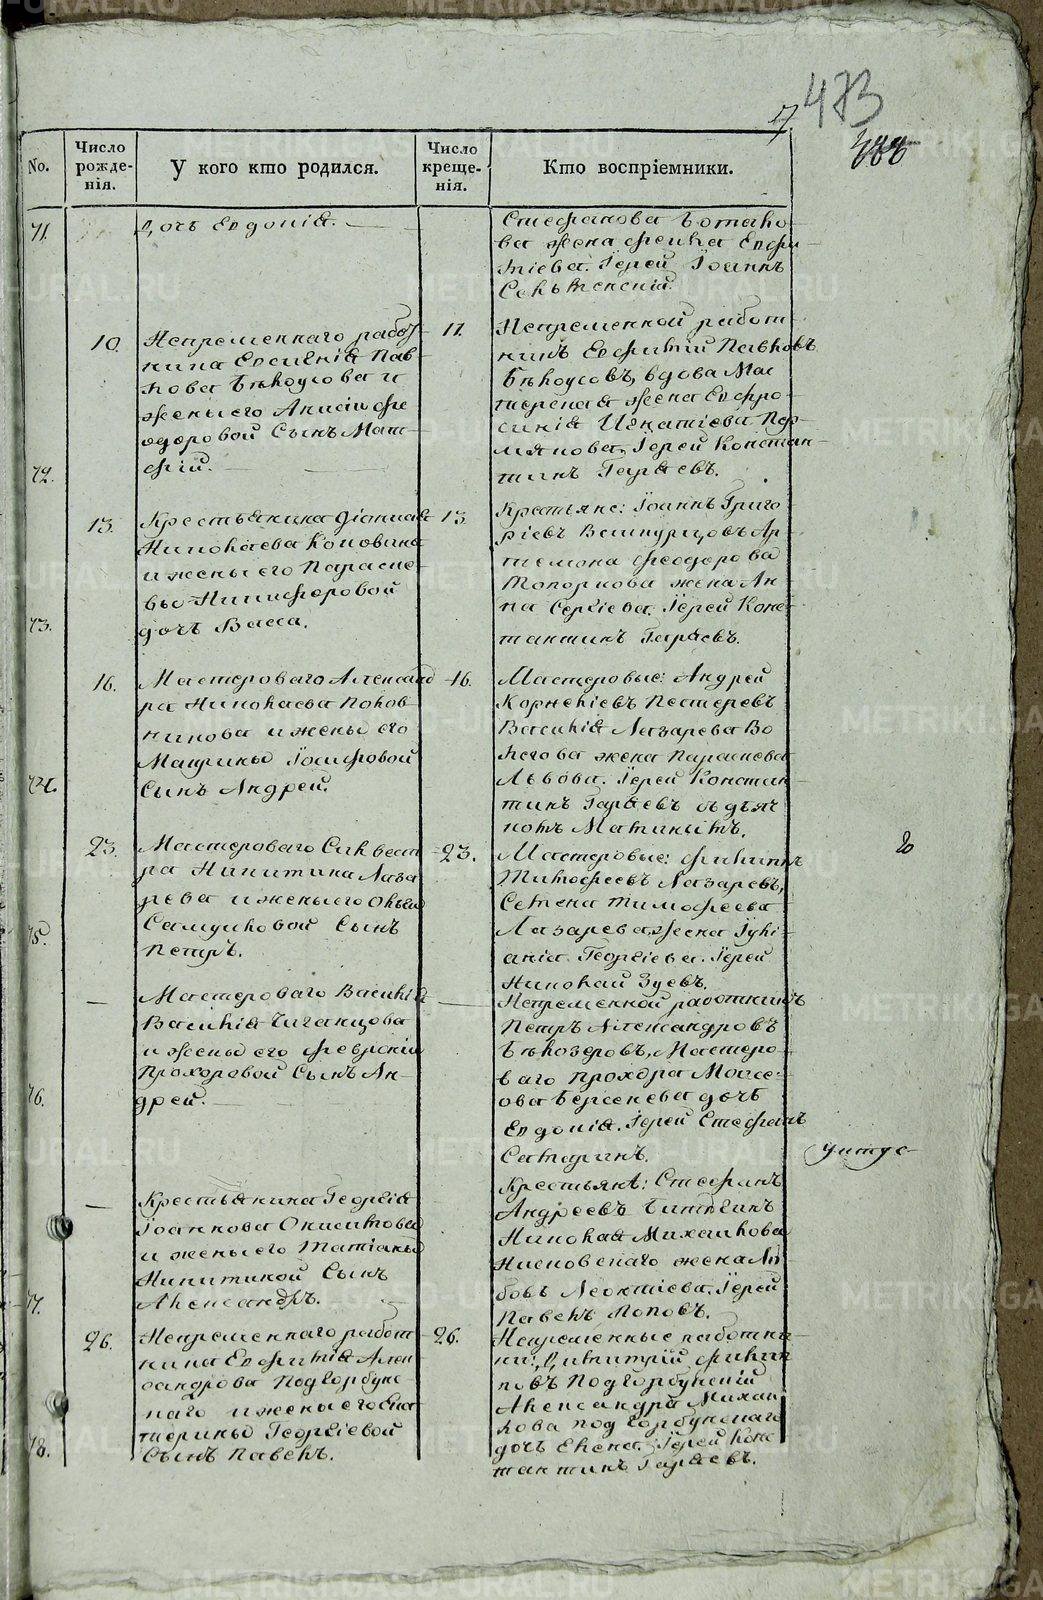 473
17
No.
Число рожде-нія.
У кого кто родился.
Число креще-нія.
Кто воспріемники.
71.
дочь Евдокія.
Стефанова
ва жена Фекла Евфи-
міева. Іерей Іоаннъ
10.
Непременнаго работ-
ника Евгенія Пав-
лова Бѣлоусова и
жены его Анисіи Фе
одоровой Сынъ Мат-
фій.
72.
11.
Непременной работ-
никъ Евфимій Павловъ
Бѣлоусовъ, вдова Мас
жена Евфро-
синія Игнатіева Пер-
мякова, Іерей Констан-
тинъ Гаряевъ.
13.
Крестьянина Діонисія
Николаева Коновина
и жены его Параске-
вы Никифоровой
дочь Васса.
73.
13
Крестьяне: Іоаннъ Григо
ріевъ Ар-
темона Феодорова
Топоркова жена Ан-
на Сергіева. Іерей Конс-
тантинъ Гаряевъ.
16.
Мастероваго Александ
ра Николаева Полов-
никова и жены его
Матрины Іосифовой
Сынъ Андрей.
74.
16.
Мастеровые: Андрей
Корниліевъ Пестеревъ
Василія Лазарева Во
легова жена Параскева
Львова. Іерей Констан-
тинъ Гаряевъ съ дьяч
комъ
23.
Мастероваго Сильвест
ра Никитина Лаза
рева и жены его Ольги
Самуиловой Сынъ
Петръ.
75.
23.
Мастеровые: Филиппъ
Тимофеевъ Лазаревъ,
Семена Тимофеева
Лазарева жена Іулі-
анія Георгіева. Іерей
Николай Зуевъ.
—
Мастероваго Василія
Василія Чиганцова
и жены его Февроніи
Прохоровой Сынъ Ан-
дрей.
76.
—
Непременной работникъ
Петръ Александровъ
Бѣлозеровъ, Мастеро-
ваго Прохора Моисе-
ова Берсенева дочь
Евдокія. Іерей Стефанъ
Сатаринъ.
—
Крестьянина Георгія
Іоаннова
и жены его Татіаны
Никитиной Сынъ
Александръ.
77.
Крестьянѣ: Стефанъ
Андреевъ
Николая Михаилова
жена Лю
бовь Леонтіева. Іерей
Павелъ Поповъ.
26.
Непременнаго работ
ника Евфимія Алек-
сандрова Подгорбунс-
наго и жены его Ека
терины Георгіевой
Сынъ Павелъ.
78.
26.
Непременные работни-
ки: Димитрій Филип
повъ Подгорбунскій
Александра Михаи
лова подгорбунскаго
дочь Елена. Іерей Конс
тантинъ Гаряевъ.
METRIKI.GASO-URAL.RU